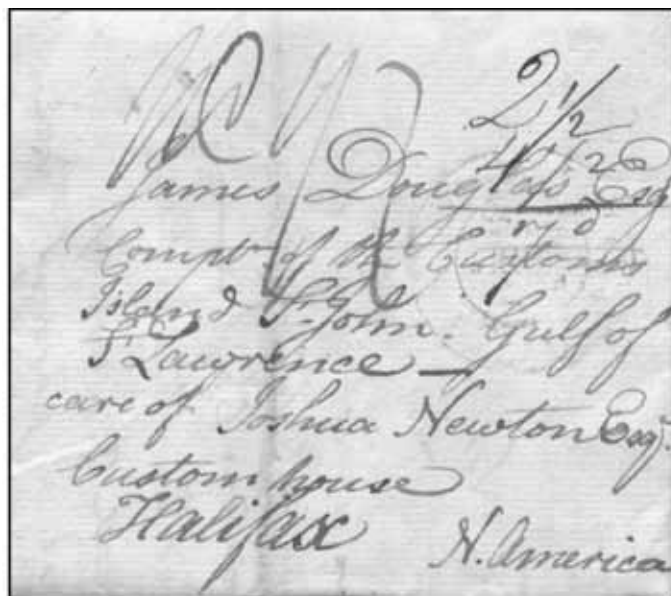 2 1/2
4 1/2
James Douglass Esq
7 d
Compt.r of the Customs
Island S.t John. Gulf of
S.t Lawrence —
care of Joshua Newton Esq.r
Custom house
Halifax
N. America